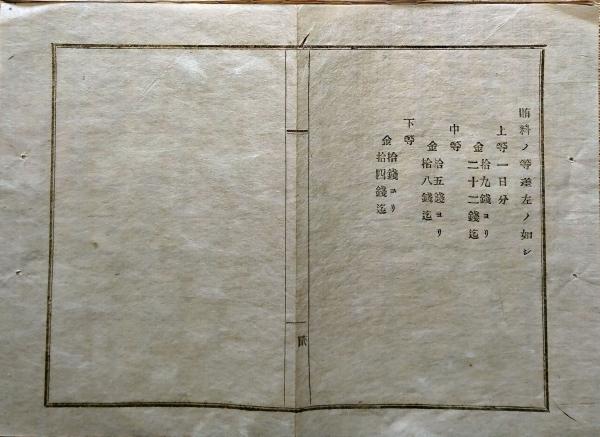 賄料ノ等差左ノ如シ
上等一日分
金拾九錢ヨリ
二十二錢迄
中等
金拾五錢ヨリ
拾八錢迄
下等
金拾錢ヨリ
拾四錢迄
貳